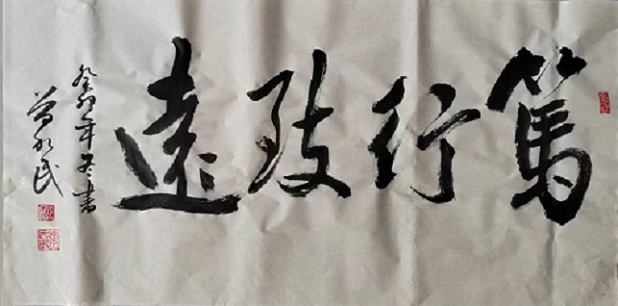 篤行致遠
癸卯年冬書
曾水民